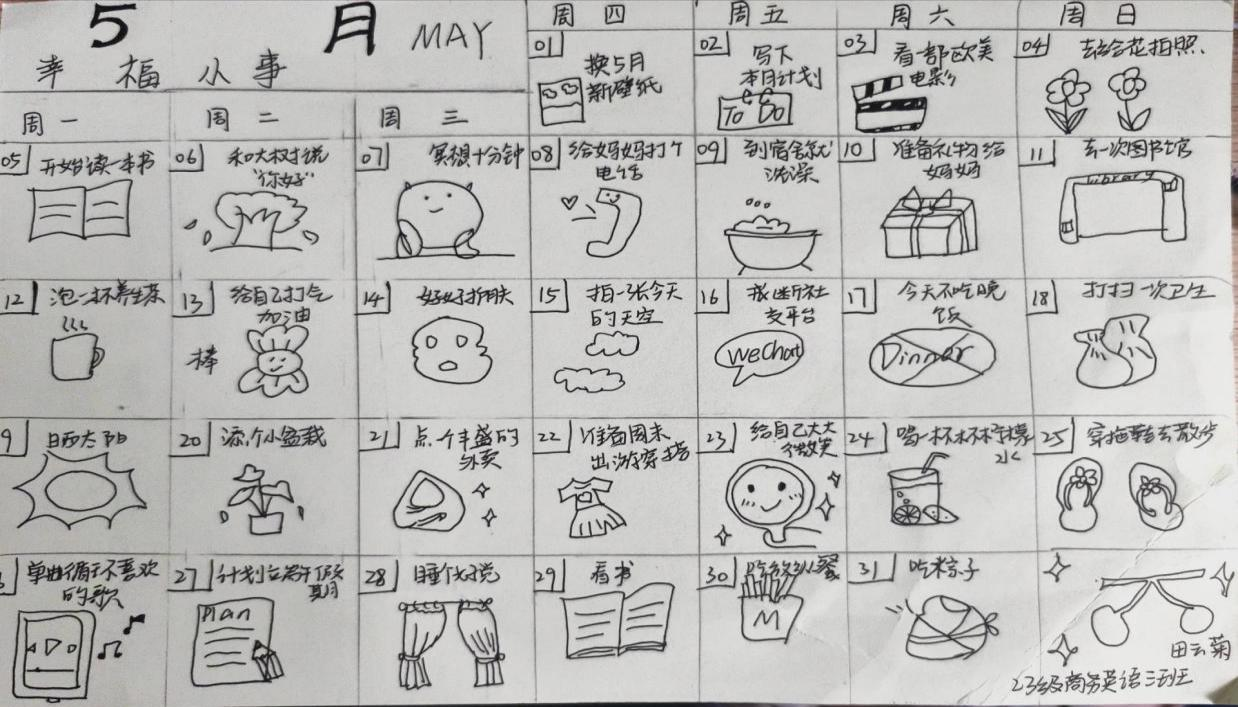 5 月 MAY
幸福小事
周一 周二 周三 周四 周五 周六 周日
01
换5月
新壁纸
02
写下
本月计划
To Do
03
看一部欧美
电影
04
去给花拍照.
05
开始读一本书
06
和大树说
"你好"
07
冥想十分钟
08
给妈妈打个
电话
09
到宿舍就
洗澡
10
准备礼物给
妈妈
11
去一次图书馆
Library
12
泡一杯养生茶
13
给自己打气
加油
棒
14
好好护肤
15
拍一张今天
的天空
16
我断社
交平台
WeChat
17
今天不吃晚
饭
Dinner
18
打扫一次卫生
9
晒太阳
20
添个小盆栽
21
点一个丰盛的
外卖
22
准备周末
出游穿搭
23
给自己大大
微笑
24
喝一杯柠檬
水
25
穿拖鞋去散步
单曲循环不喜欢
的歌
27
计划立端午假
期
Plan
28
睡个好觉
29
看书
30
M
31
吃粽子
田云菊
23级商务英语三班